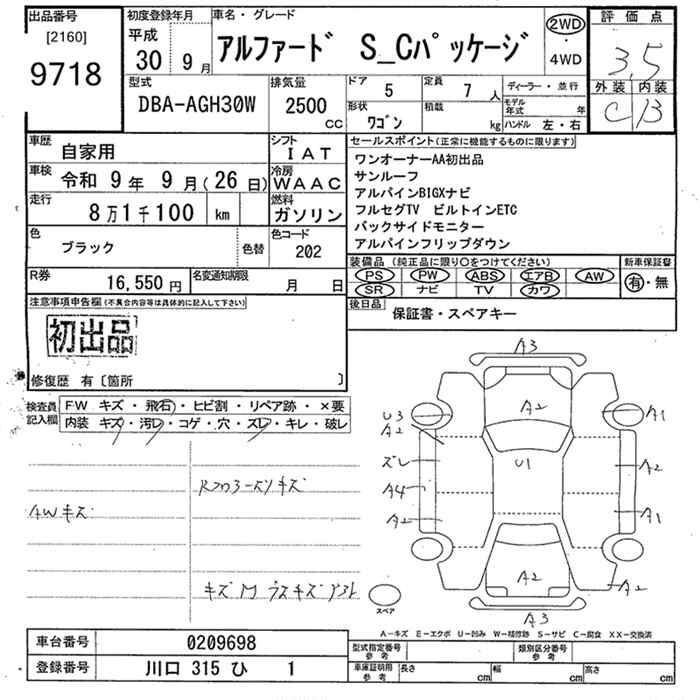 出品番号
[2160]
9718
初度登録年月
平成
30 9月
車名・グレード
アルファード S_Cパッケージ
2WD
・
4WD
評価点
3.5
外装 内装
C B
型式
DBA-AGH30W
排気量
2500
CC
ドア
5
定員
7人
形状
ワゴン
積載
kg
ディーラー・並行
モデル年式 年
ハンドル 左・右
車歴
自家用
シフト
IAT
車検
令和 9年 9月(26日)
冷房
WAAC
走行
8万1千100 km
燃料
ガソリン
色
ブラック
色替
色コード
202
R券
16,550円
名変通知期限
月 日
セールスポイント(正常に機能するものに限ります)
ワンオーナーAA初出品
サンルーフ
アルパインBIGXナビ
フルセグTV ビルトインETC
バックサイドモニター
アルパインフリップダウン
装備品(純正品に限り○をつけてください)
PS PW ABS エアB AW
SR ナビ TV カワ
新車保証書
有・無
後日品
保証書・スペアキー
注意事項申告欄(不具合内容等は具体的に記入して下さい)
初出品
修復歴 有〔箇所 〕
検査員
記入欄
FW キズ・飛石・ヒビ割・リペア跡・×要
内装 キズ・汚レ・コゲ・穴・スレ・キレ・破レ
AWキズ
キズM
A3
A2
U3
A2
ズレ
A4
A2
U1
A1
A2
A1
A2
A2
A3
スペア
A−キズ E−エクボ U−凹み W−補修跡 S−サビ C−腐食 XX−交換済
車台番号
0209698
登録番号
川口 315 ひ 1
型式指定番号
参考
類別区分番号
参考
車庫証明用
参考
長さ cm
幅 cm
高さ cm